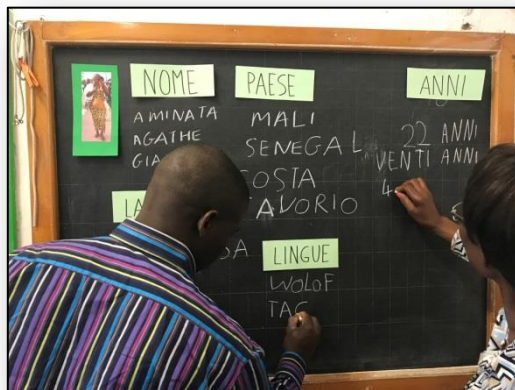 NOME
AMINATA
AGATHE
GIA
PAESE
MALI
SENEGAL
COSTA
AVORIO
ANNI
22 ANNI
VENTI ANNI
4
LA
LINGUE
WOLOF
TAG